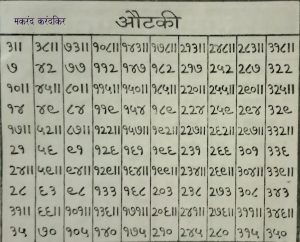 मकरंद करंदकिर
औटकी
३॥ ३८॥ ७३॥ १०८॥ १४३॥ १७८॥ २१३॥ २४८॥ २८३॥ ३१८॥
७ ४२ ७७ ११२ १४७ १८२ २१७ २५२ २८७ ३२२
१०॥ ४५॥ ८०॥ ११५॥ १५०॥ १८५॥ २२०॥ २५५॥ २९०॥ ३२५॥
१४ ४९ ८४ ११९ १५४ १८९ २२४ २५९ २९४ ३२९
१७॥ ५२॥ ८७॥ १२२॥ १५७॥ १९२॥ २२७॥ २६२॥ २९७॥ ३३२॥
२१ ५६ ९१ १२६ १६१ १९६ २३१ २६६ ३०१ ३३६
२४॥ ५९॥ ९४॥ १२९॥ १६४॥ १९९॥ २३४॥ २६९॥ ३०४॥ ३३९॥
२८ ६३ ९८ १३३ १६८ २०३ २३८ २७३ ३०८ ३४३
३१॥ ६६॥ १०१॥ १३६॥ १७१॥ २०६॥ २४१॥ २७६॥ ३११॥ ३४६॥
३५ ७० १०५ १४० १७५ २१० २४५ २८० ३१५ ३५०